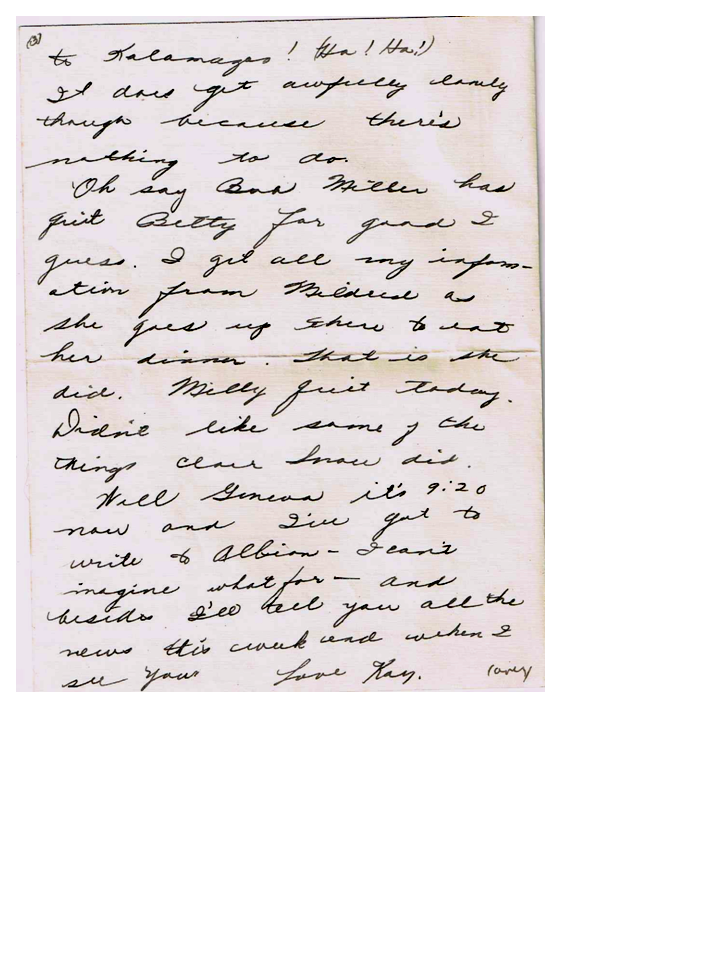 (3)
to Kalamazoo! (Ha! Ha!)
It does get awfully lonely
though because there's
nothing to do.
Oh say Miller has
quit Betty for good I
guess. I get all my inform-
ation from Mildred as
she goes up there to eat
her dinner. That is she
did. Milly quit today.
Didn't like some of the
things Clair Snow did.
Well Geneva it's 9:20
now and I've got to
write to Albion - I can't
imagine what for - and
besides I'll tell you all the
news this week end when I
see you Love Kay.
(over)